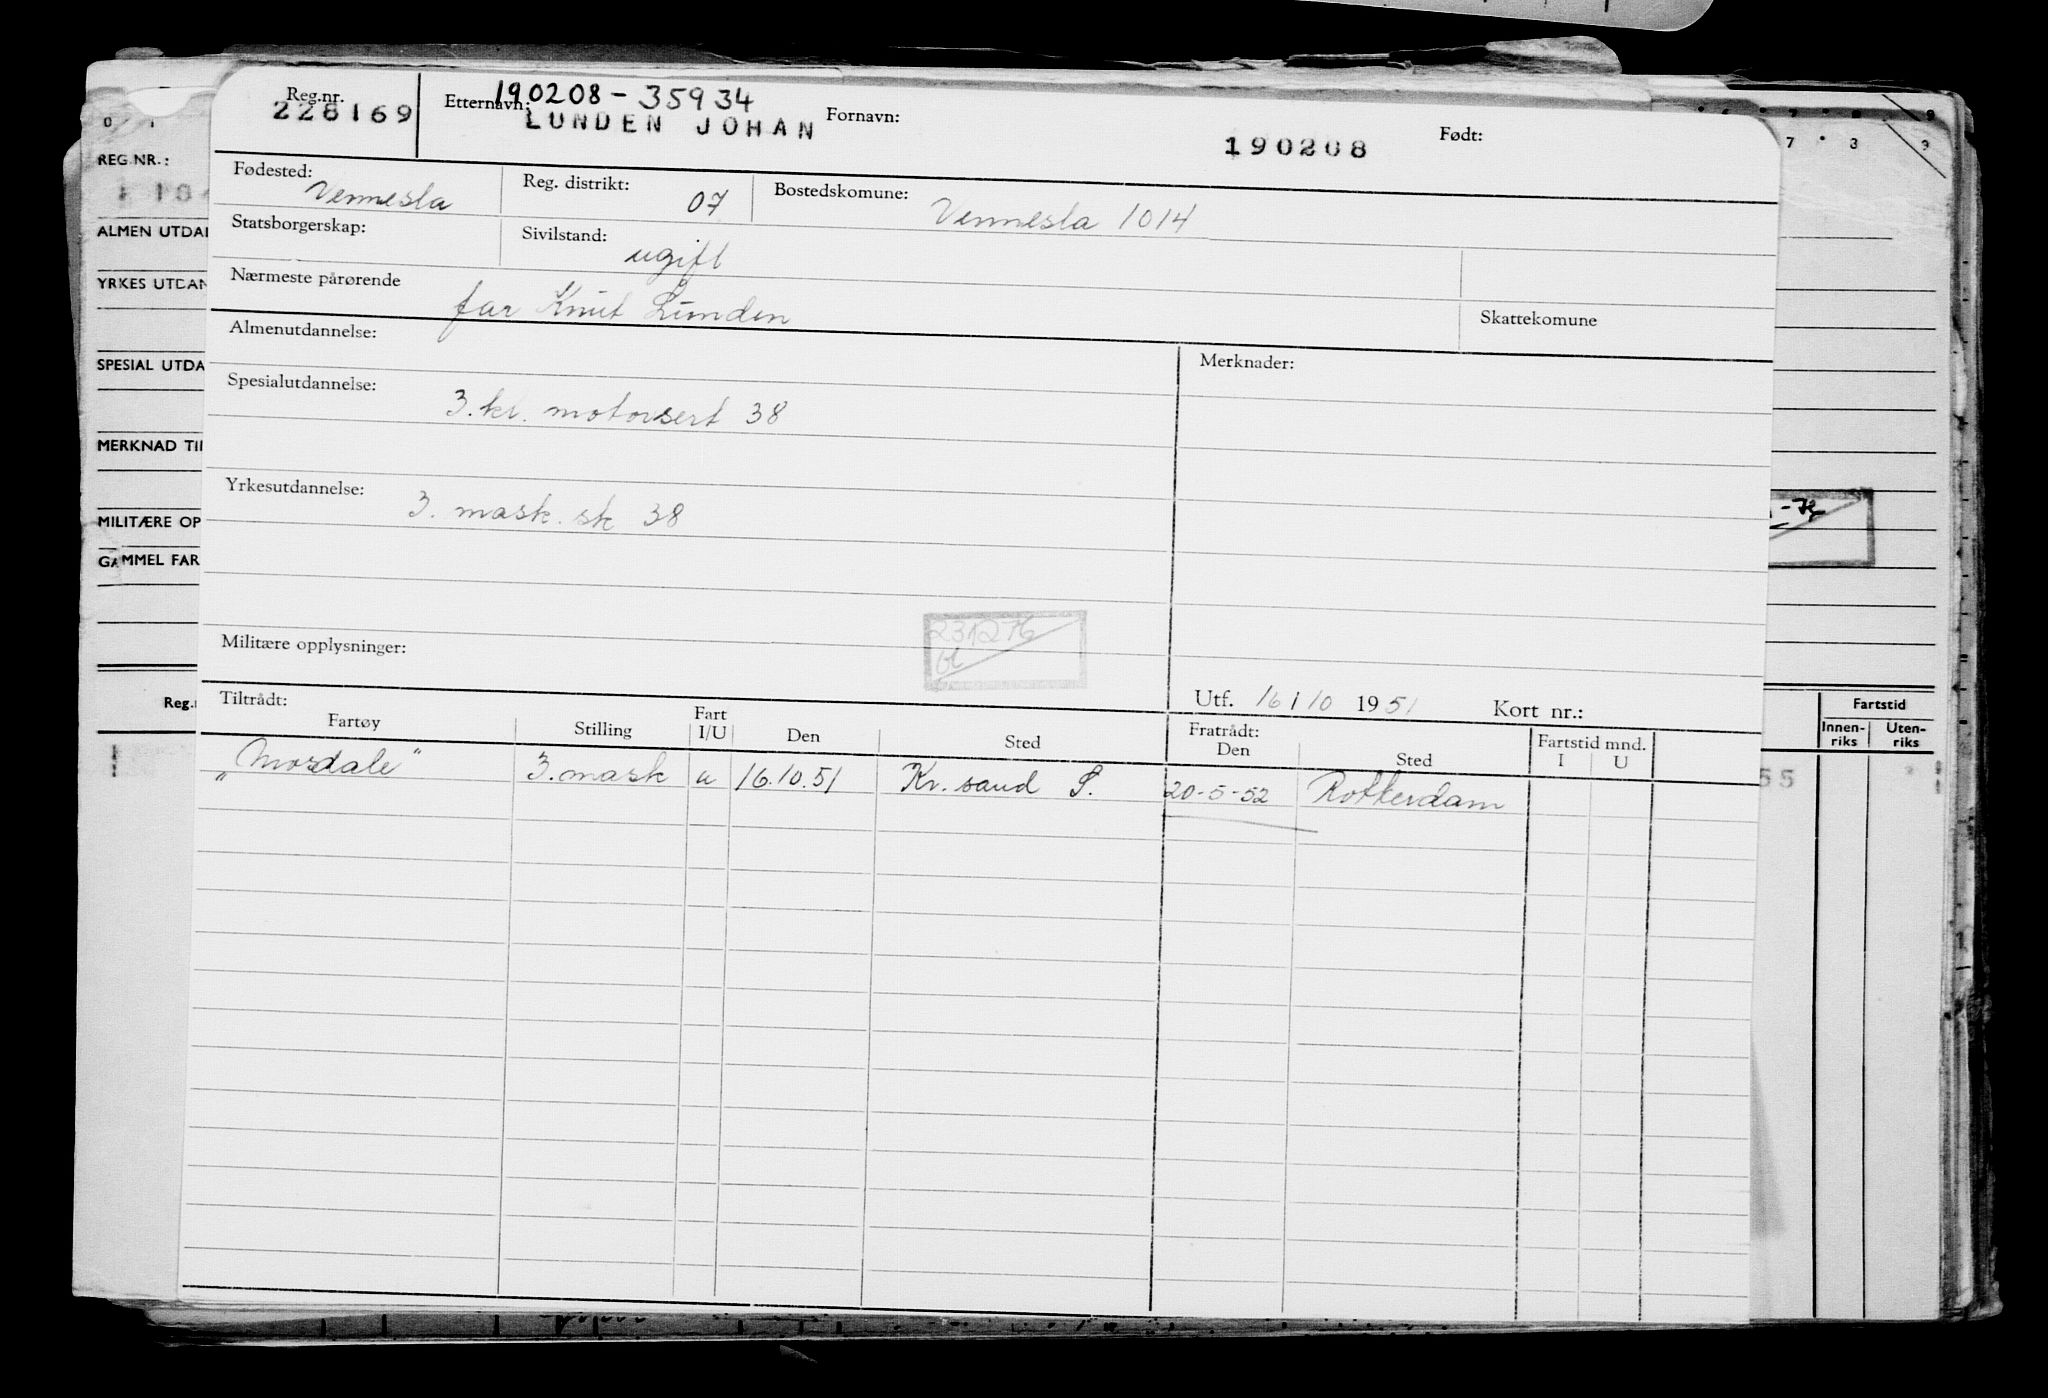 Reg.nr. 228169 Etternavn: 190208-35934 LUNDEN JOHAN Fornavn: 190208 Født:
Fødested: Vennesla Reg. distrikt: 07 Bostedskomune: Vennesla 1014
Statsborgerskap: Sivilstand: ugift
Nærmeste pårørende far Knut Lunden Skattekomune
Almenutdannelse: Merknader:
Spesialutdannelse: 3.kl. motorsert 38
Yrkesutdannelse: 3. mask. sk 38
231276
Militære opplysninger:
Tiltrådt: Utf. 16/10 1951 Kort nr.:
Fartøy Stilling Fart I/U Den Sted Fratrådt: Den Sted Fartstid mnd. I U
"Mosdale" 3. mask u 16.10.51 Kr. sand S. 20-5-52 Rotterdam
REG.NR.:
ALMEN UTDAN
YRKES UTDAN
SPESIAL UTDA
MERKNAD TIL
MILITÆRE OP
GAMMEL FAR
Reg.
Fartstid
Innen-riks Uten-riks
55